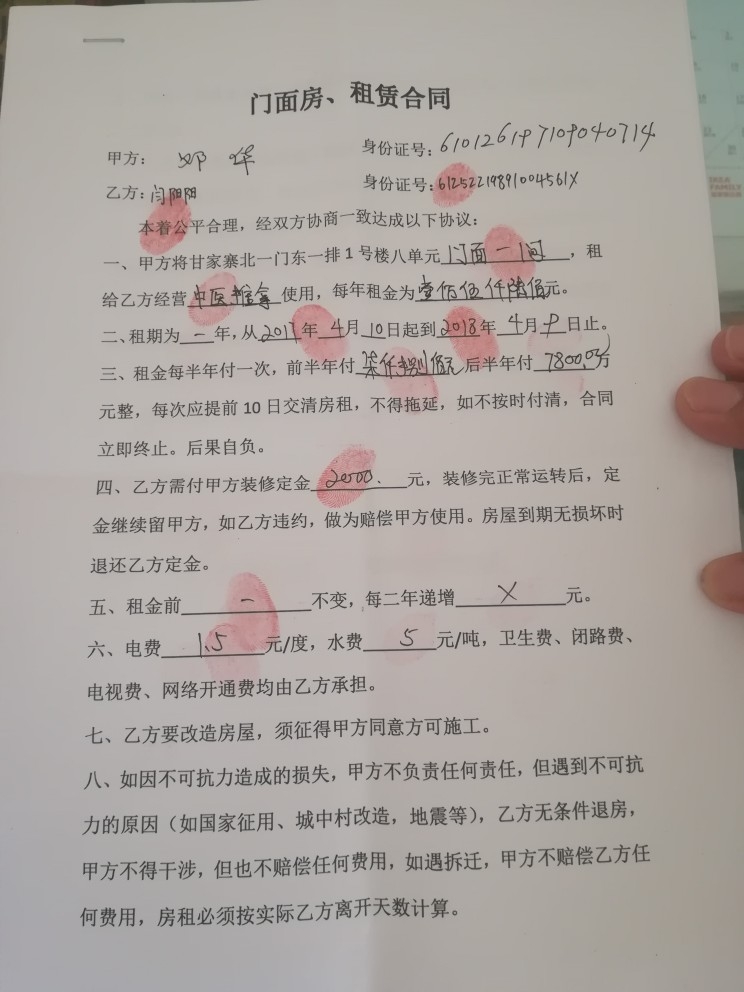 门面房、租赁合同
甲方：邓华 身份证号：610126197109040714
乙方：闫阴阳 身份证号：61252219891004561X
本着公平合理，经双方协商一致达成以下协议：
一、甲方将甘家寨北一门东一排1号楼八单元门面一间，租
给乙方经营中医推拿使用，每年租金为壹 伍仟陆佰元。
二、租期为一年，从2017年4月10日起到2018年4月9日止。
三、租金每半年付一次，前半年付柒仟捌佰元后半年付7800.00
元整，每次应提前10日交清房租，不得拖延，如不按时付清，合同
立即终止。后果自负。
四、乙方需付甲方装修定金2000.元，装修完正常运转后，定
金继续留甲方，如乙方违约，做为赔偿甲方使用。房屋到期无损坏时
退还乙方定金。
五、租金前一不变，每二年递增X元。
六、电费1.5元/度，水费5元/吨，卫生费、闭路费、
电视费、网络开通费均由乙方承担。
七、乙方要改造房屋，须征得甲方同意方可施工。
八、如因不可抗力造成的损失，甲方不负责任何责任，但遇到不可抗
力的原因（如国家征用、城中村改造，地震等），乙方无条件退房，
甲方不得干涉，但也不赔偿任何费用，如遇拆迁，甲方不赔偿乙方任
何费用，房租必须按实际乙方离开天数计算。